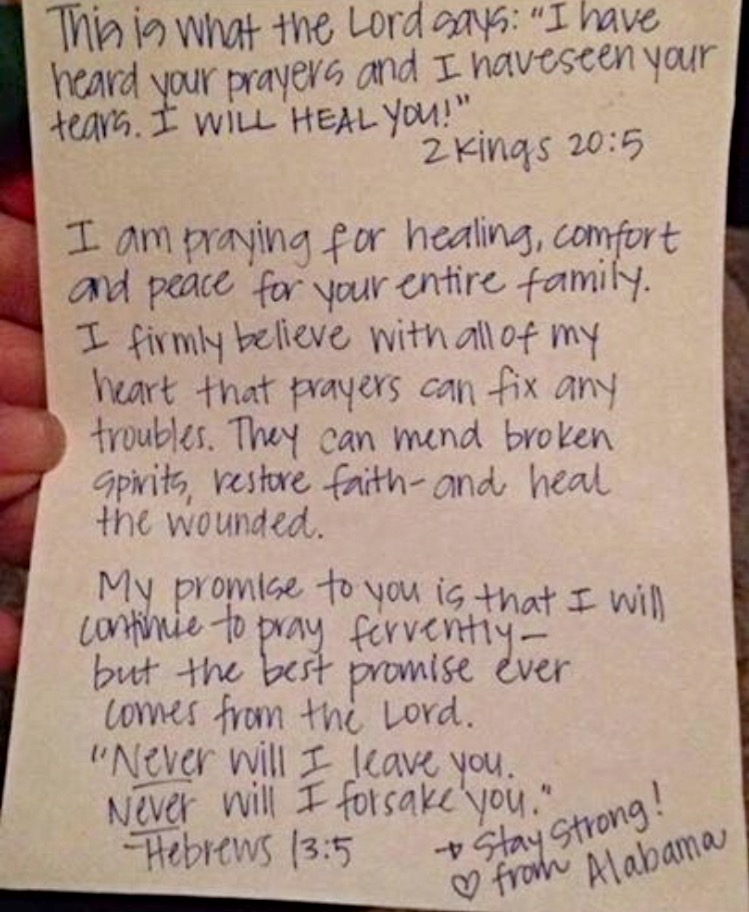 This is what the Lord says: "I have
heard your prayers and I have seen your
tears. I WILL HEAL YOU!"
2 Kings 20:5
I am praying for healing, comfort
and peace for your entire family.
I firmly believe with all of my
heart that prayers can fix any
troubles. They can mend broken
spirits, restore faith - and heal
the wounded.
My promise to you is that I will
continue to pray fervently -
but the best promise ever
comes from the Lord.
"Never will I leave you.
Never will I forsake you."
-Hebrews 13:5
→ Stay Strong!
♡ from Alabama